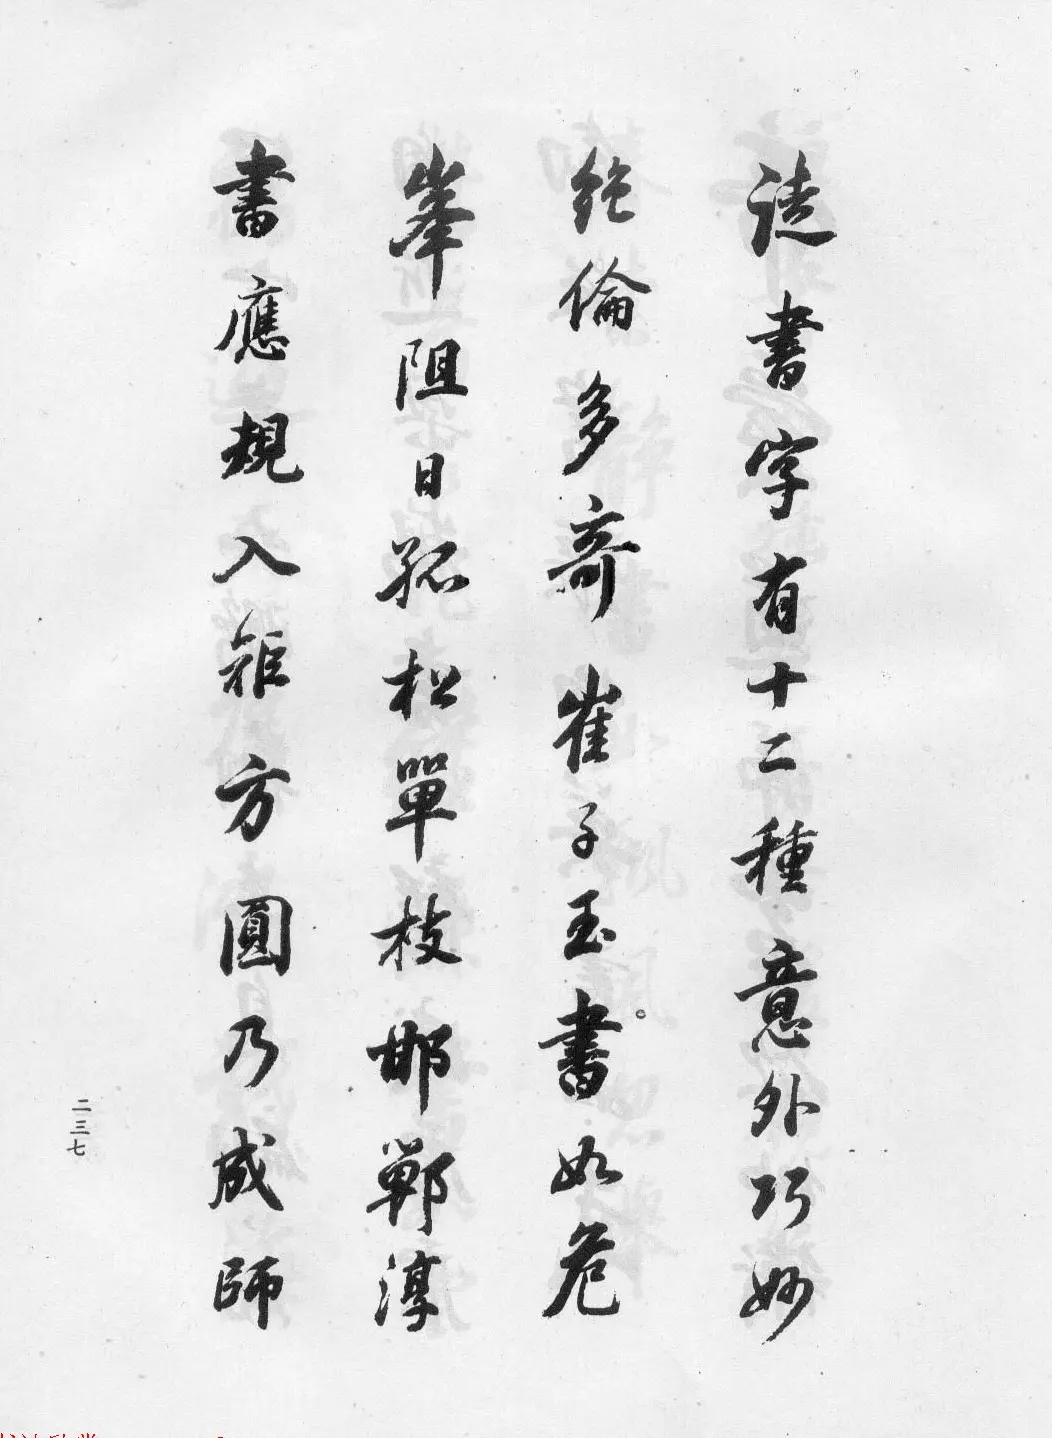 徒書字有十二種意外巧妙
絕倫多奇崔子玉書如危
峯阻日孤松單枝邯鄲淳
書應規入矩方圓乃成師
二三七